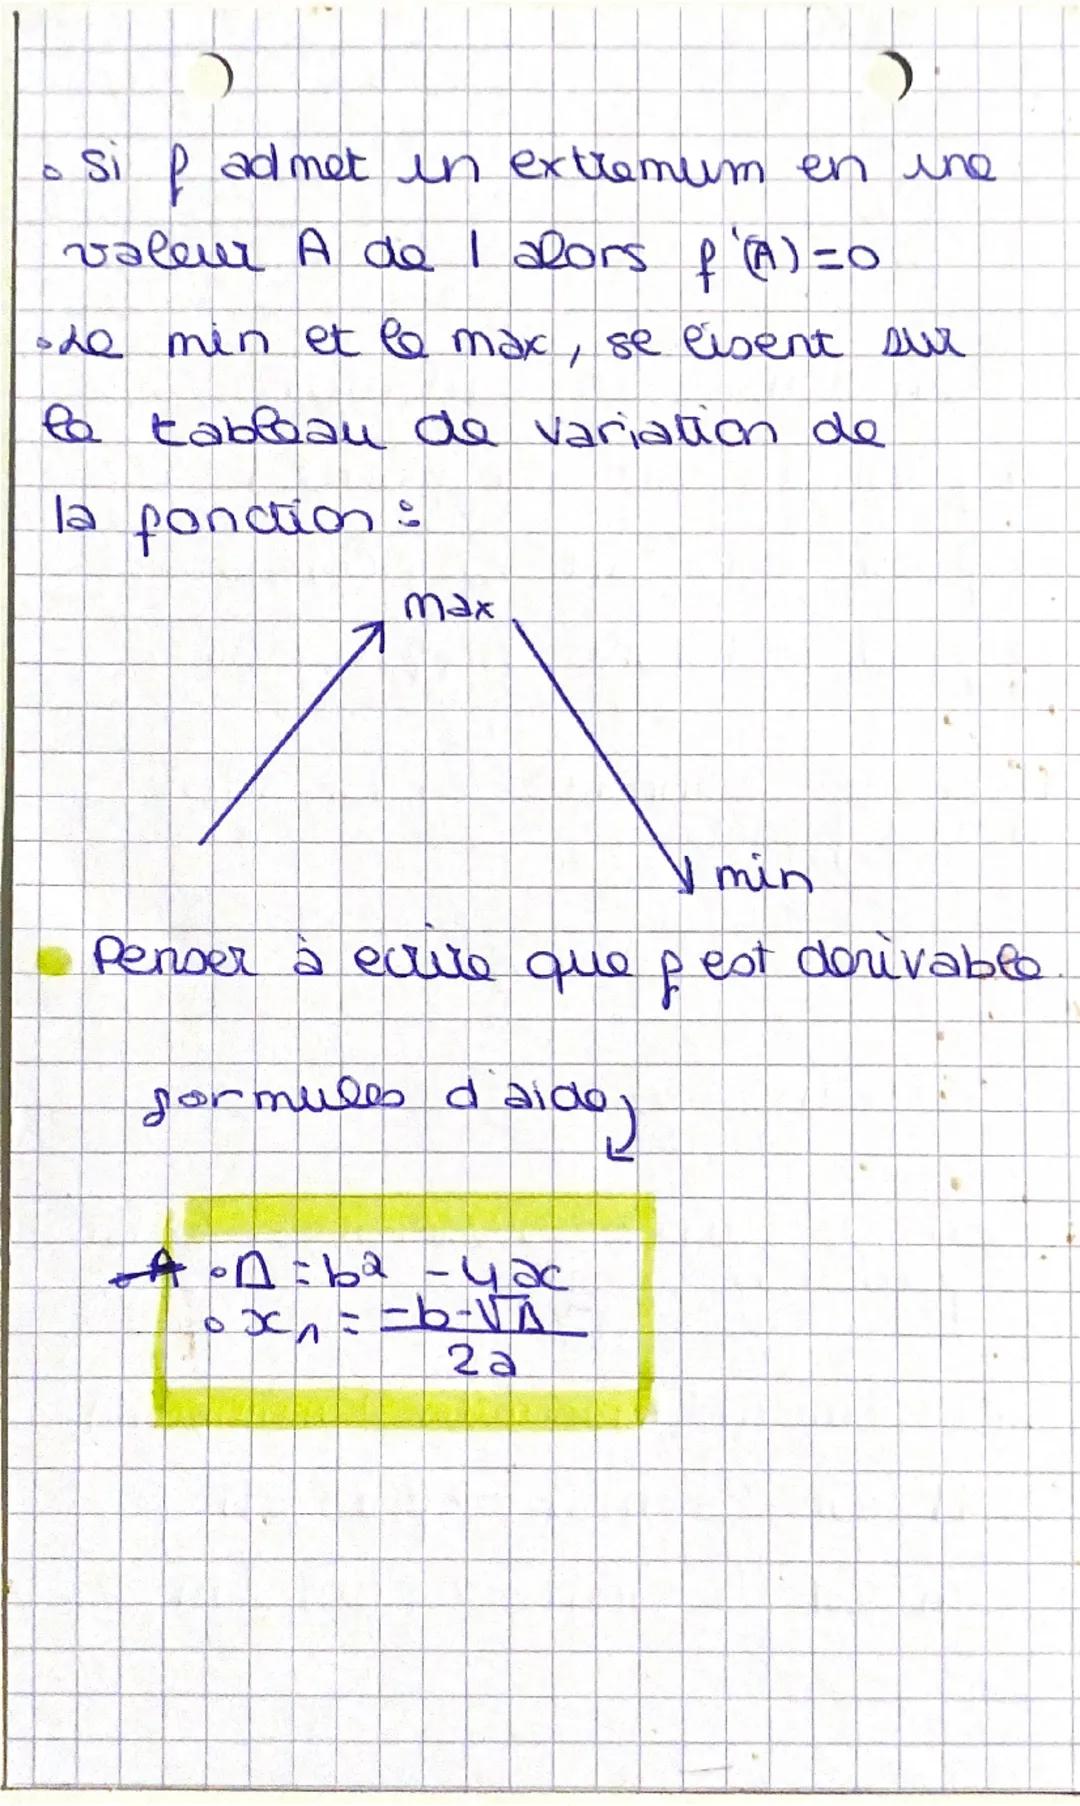 • Si f admet un extremum en une
valeur A de I alors f'(A)=0
• Le min et le max, se lisent sur
le tableau de variation de
la fonction :
max
min
• Penser à ecrire que f est derivable.
formules d'aide
• Δ = b² - 4ac
• x₁ = -b-√Δ
2a